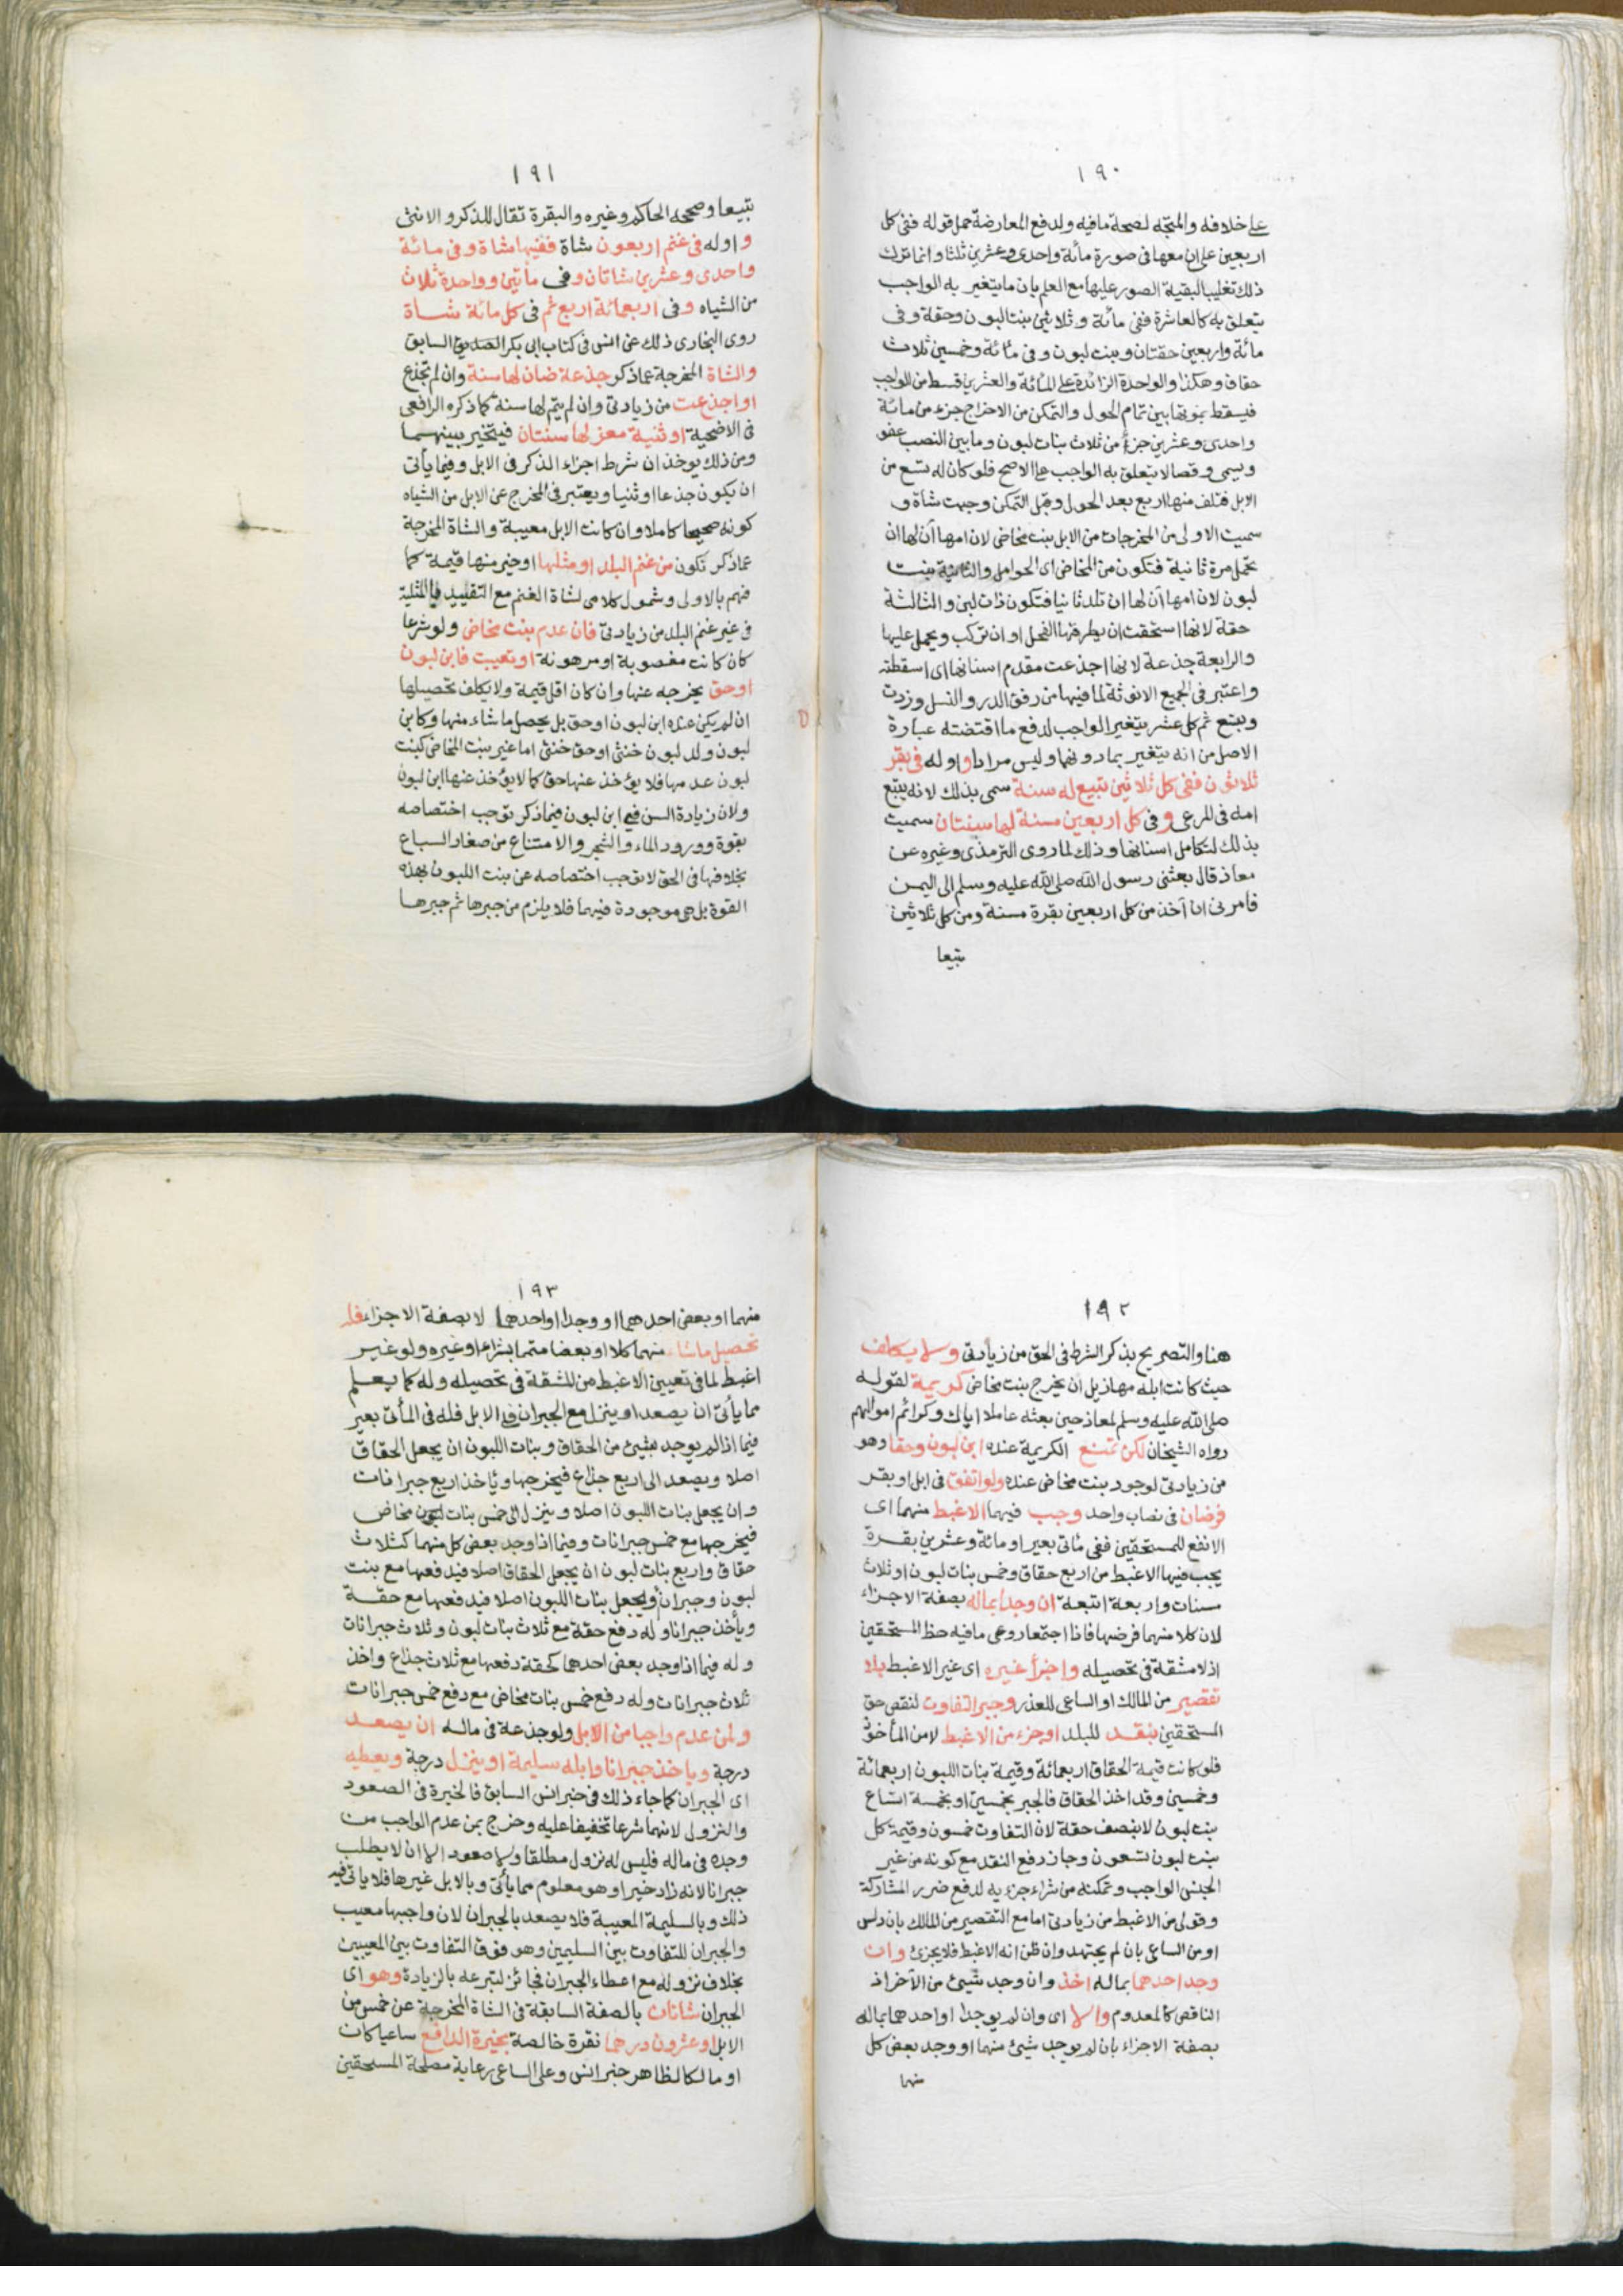 ١٩٠
على خلافه والمتجه لصحة مافيه ولدفع المعارضة حمل قوله ففى كل
اربعين على ان معها فى صورة مائة واحدى وعشرين ثلثا وانما ترك
ذلك تغليبا لبقية الصور عليها مع العلم بان ما يتغير به الواجب
يتعلق به كالعاشرة ففى مائة وثلاثين بنت لبون وحقة وفى
مائة واربعين حقتان وبنت لبون وفى مائة وخمسين ثلاث
حقاق وهكذا والواحدة الزائدة على المائة والعشرين قسط من الواجب
فيسقط بموتها بين تمام الحول والتمكن من الاخراج جزء من مائة
واحدى وعشرين جزأ من ثلاث بنات لبون وما بين النصب عفو
ويسمى وقصا لا يتعلق به الواجب على الاصح فلو كان له تسع من
الابل فتلف منها اربع بعد الحول وقبل التمكن وجبت شاة و
سميت الاولى من المخرجات من الابل بنت مخاض لان امها آن لها ان
تحمل مرة ثانية فتكون من المخاض اى الحوامل والثانية بنت
لبون لان امها آن لها ان تلد ثانيا فتكون ذات لبن والثالثة
حقة لانها استحقت ان يطرقها الفحل او ان تركب ويحمل عليها
والرابعة جذعة لانها اجذعت مقدم اسنانها اى اسقطته
واعتبر فى الجميع الانوثة لما فيها من رفق الدر والنسل وزدت
وبتسع ثم كل عشر يتغير الواجب لدفع ما اقتضته عبارة
الاصل من انه يتغير بما دونهما وليس مرادا واوله فى بقر
ثلاثون ففى كل ثلاثين تبيع له سنة سمى بذلك لانه يتبع
امه فى المرعى وفى كل اربعين مسنة لها سنتان سميت
بذلك لتكامل اسنانها وذلك لما روى الترمذى وغيره عن
معاذ قال بعثنى رسول الله صلى الله عليه وسلم الى اليمن
فامرنى ان آخذ من كل اربعين بقرة مسنة ومن كل ثلاثين
تبيعا
١٩١
تبيعا وصححه الحاكم وغيره والبقرة تقال للذكر والانثى
و اوله فى غنم اربعون شاة ففيها شاة وفى مائة
واحدى وعشرين شاتان وفى مأتين وواحدة ثلاث
من الشياه وفى اربعمائة اربع ثم فى كل مائة شاة
روى البخارى ذلك عن انس فى كتاب ابى بكر الصديق السابق
والشاة المخرجة عما ذكر جذعة ضان لها سنة وان لم تجذع
او اجذعت من زيادتى وان لم يتم لها سنة كما ذكره الرافعى
فى الاضحية او ثنية معز لها سنتان فيتخير بينهما
ومن ذلك يوخذ ان شرط اجزاء الذكر فى الابل وفيما يأتى
ان يكون جذعا او ثنيا ويعتبر فى المخرج عن الابل من الشياه
كونه صحيحا كاملا وان كانت الابل معيبة والشاة المخرجة
عما ذكر تكون من غنم البلد او مثلها او خير منها قيمة كما
فهم بالاولى وشمول كلامى لشاة الغنم مع التقييد بالمثلية
فى غير غنم البلد من زيادتى فان عدم بنت مخاض ولو شرعا
كان كانت مغصوبة او مرهونة او تعيبت فابن لبون
او حق يخرجه عنها وان كان اقل قيمة ولا يكلف تحصيلها
ان لم يكن عنده ابن لبون او حق بل يحصل ما شاء منها وكابن
لبون ولد لبون خنثى او حق خنثى اما غير بنت المخاض كبنت
لبون عدمها فلا يؤخذ عنها حق كما لا يؤخذ عنها ابن لبون
ولان زيادة السن فى ابن لبون فيما ذكر توجب اختصاصه
بقوة وورود الماء والشجر والامتناع من صغار السباع
بخلافها فى الحق لا توجب اختصاصه عن بنت اللبون بهذه
القوة بل هى موجودة فيهما فلا يلزم من جبرها ثم جبرها
١٩٢
هنا والتصريح بذكر الشرط فى الحق من زيادتى ولا يكلف
حيث كانت ابله مهازيل ان يخرج بنت مخاض كريمة لقوله
صلى الله عليه وسلم لمعاذ حين بعثه عاملا اياك وكرائم اموالهم
رواه الشيخان لكن تمنع الكريمة عنده ابن لبون وحقا وهو
من زيادتى لوجود بنت مخاض عنده ولو اتفق فى ابل او بقر
فرضان فى نصاب واحد وجب فيهما الاغبط منهما اى
الانفع للمستحقين ففى مأتى بعير او مائة وعشرين بقرة
يجب فيها الاغبط من اربع حقاق وخمس بنات لبون او ثلاث
مسنات واربعة اتبعة ان وجدا بماله بصفة الاجزاء
لان كلا منهما فرضها فاذا اجتمعا روعى مافيه حظ المستحقين
اذ لا مشقة فى تحصيله واجزأ غيره اى غير الاغبط بلا
تقصير من المالك او الساعى للعذر وجبر التفاوت لنقص حق
المستحقين بنقد للبلد او جزء من الاغبط لا من المأخوذ
فلو كانت قيمة الحقاق اربعمائة وقيمة بنات اللبون اربعمائة
وخمسين وقد اخذ الحقاق فالجبر بخمسين او بخمسة اتساع
بنت لبون لا بنصف حقة لان التفاوت خمسون وقيمة كل
بنت لبون تسعون وجاز دفع النقد مع كونه من غير
الجنس الواجب وتمكنه من شراء جزء به لدفع ضرر المشاركة
وقولى من الاغبط من زيادتى اما مع التقصير من المالك بان دلس
او من الساعى بان لم يجتهد وان ظن انه الاغبط فلا يجزئ وان
وجد احدهما بماله اخذ وان وجد شيئ من الآخر اذ
الناقص كالمعدوم والا اى وان لم يوجدا او احدهما بماله
بصفة الاجزاء بان لم يوجد شيئ منهما او وجد بعض كل
منهما
١٩٣
منهما او بعض احدهما او وجدا او احدهما لا بصفة الاجزاء فله
تحصيل ما شاء منهما كلا او بعضا متمما بشراء او غيره ولو غير
اغبط لما فى تعيين الاغبط من المشقة فى تحصيله وله كما يعلم
مما يأتى ان يصعد او ينزل مع الجبران فى الابل فله فى المأتى بعير
فيما اذا لم يوجد شيئ من الحقاق وبنات اللبون ان يجعل الحقاق
اصلا ويصعد الى اربع جذاع فيخرجها وياخذ اربع جبرانات
وان يجعل بنات اللبون اصلا وينزل الى خمس بنات مخاض
فيخرجها مع خمس جبرانات وفيما اذا وجد بعض كل منهما كثلاث
حقاق واربع بنات لبون ان يجعل الحقاق اصلا فيدفعها مع بنت
لبون وجبران او يجعل بنات اللبون اصلا فيدفعها مع حقة
ويأخذ جبرانا وله دفع حقة مع ثلاث بنات لبون وثلاث جبرانات
وله فيما اذا وجد بعض احدهما كحقة دفعها مع ثلاث جذاع واخذ
ثلاث جبرانات وله دفع خمس بنات مخاض مع دفع خمس جبرانات
ولمن عدم واجبا من الابل ولو جذعة فى ماله ان يصعد
درجة وياخذ جبرانا وابله سليمة او ينزل درجة ويعطيه
اى الجبران كما جاء ذلك فى خبر انس السابق فالخيرة فى الصعود
والنزول لانهما شرعا تخفيفا عليه وخرج بمن عدم الواجب من
وجده فى ماله فليس له نزول مطلقا ولا صعود الا ان لا يطلب
جبرانا لانه زاد خيرا وهو معلوم مما يأتى وبالابل غيرها فلا ياتى فيه
ذلك وبالسليمة المعيبة فلا يصعد بالجبران لان واجبها معيب
والجبران للتفاوت بين السليمين وهو فوق التفاوت بين المعيبين
بخلاف نزوله مع اعطاء الجبران فجائز لتبرعه بالزيادة وهو اى
الجبران شاتان بالصفة السابقة فى الشاة المخرجة عن خمس من
الابل او عشرون درهما نقرة خالصة بخيرة الدافع ساعيا كان
او مالكا لظاهر خبر انس وعلى الساعى رعاية مصلحة المستحقين